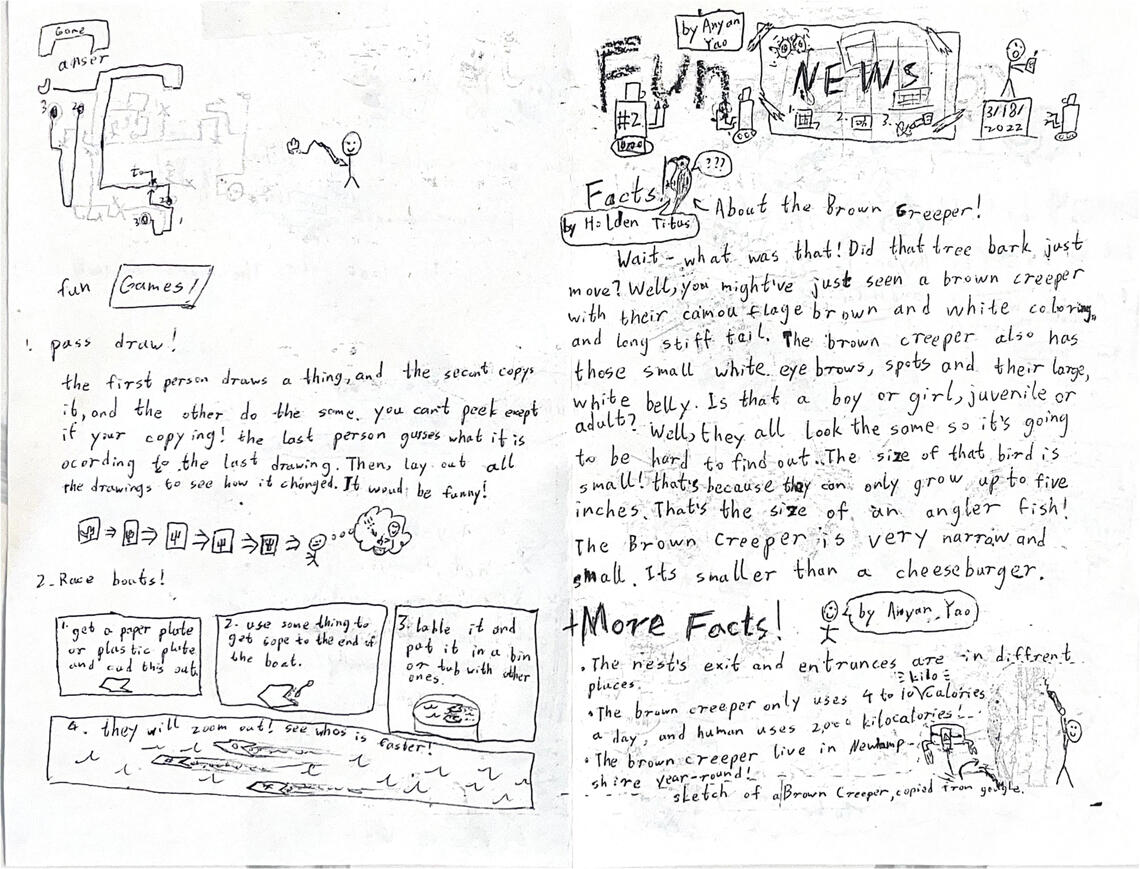 Game
anser
3
2
to
2
3
1
fun Games!
1. pass draw!
the first person draws a thing, and the secunt copys
it, and the other do the same. you can't peek exept
if your copying! the last person gusses what it is
ocording to the last drawing. Then, lay out all
the drawings to see how it changed. It woud be funny!
2. Race boats!
1. get a paper plate
or plastic plate
and cud this out
2. use some thing to
get sope to the end of
the boat.
3. lable it and
put it in a bin
or tub with other
ones.
4. they will zoom out! see whos is faster!
by Anyan
Yao
Fun
NEWS
#2
1.
2.
3.
3/18/
2022
???
Facts
by Holden Titus
About the Brown Creeper!
Wait - what was that! Did that tree bark just
move? Well, you might've just seen a brown creeper
with their camouflage brown and white coloring,
and long stiff tail. The brown creeper also has
those small white eye brows, spots and their large,
white belly. Is that a boy or girl, juvenile or
adult? Well, they all look the same so it's going
to be hard to find out. The size of that bird is
small! that's because they can only grow up to five
inches. That's the size of an angler fish!
The Brown Creeper is very narrow and
small. Its smaller than a cheeseburger.
+More Facts!
by Anyan Yao
• The nest's exit and entrances are in diffrent
places.
kilo
• The brown creeper only uses 4 to 10 Calories
a day, and human uses 2,000 kilocalories!
• The brown creeper live in Newhamp-
shire year-round!
sketch of a Brown Creeper, copied from google.